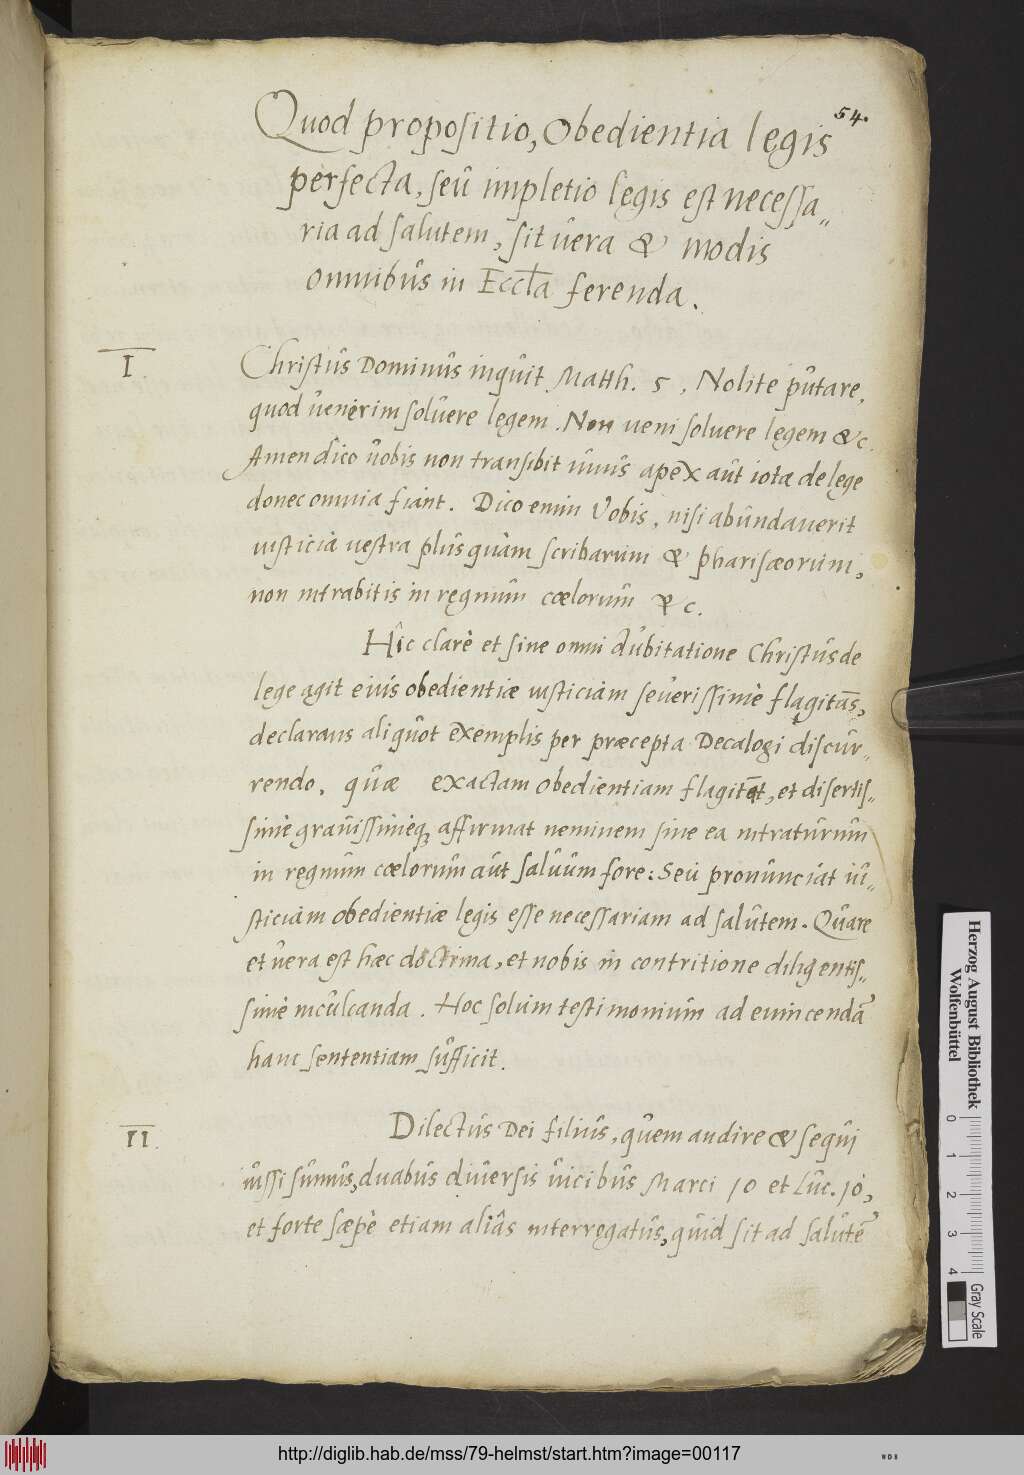 54.
Quod propositio, Obedientia legis
perfecta, seu impletio legis est necessa„
ria ad salutem, sit vera & modis
omnibus in Eccl̄a ferenda.
I.
Christus Dominus inquit Matth. 5, Nolite putare,
quod venerim solvere legem. Non veni solvere legem &c.
Amen dico vobis non transibit unus apex aut iota de lege
donec omnia fiant. Dico enim Vobis, nisi abundaverit
iusticia vestra plus quàm scribarum & pharisæorum,
non intrabitis in regnum cœlorum &c.
Hic clarè et sine omni dubitatione Christus de
lege agit eius obedientiæ iusticiam severissimè flagitās,
declarans aliquot exemplis per præcepta Decalogi discur„
rendo, quæ exactam obedientiam flagitēt, et disertis„
simè gravissimeq affirmat neminem sine ea intraturum
in regnum cœlorum aut salvum fore: Seu pronunciat iu„
sticiam obedientiæ legis esse necessariam ad salutem. Quare
et vera est hæc doctrina, et nobis in contritione diligentis„
simè inculcanda. Hoc solum testimonium ad evincendā
hanc sententiam sufficit.
II.
Dilectus Dei filius, quem audire & sequi
iussi sumus, duabus diversis vicibus Marci 10 et Luc. 10,
et forte sæpè etiam aliâs interrogatus, quid sit ad salutē
Herzog August Bibliothek
Wolfenbüttel
0 1 2 3 4
Gray Scale
http://diglib.hab.de/mss/79-helmst/start.htm?image=00117
WDB